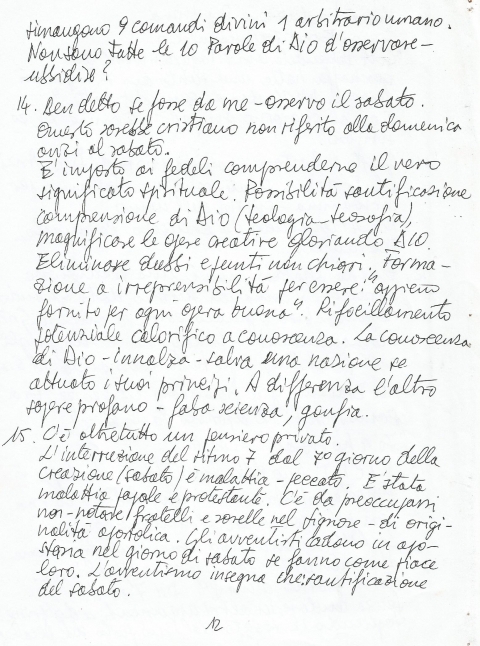 rimangono 9 comandi divini 1 arbitrario umano.
Non sono tutte le 10 Parole di Dio d'osservare-
ubbidire?
14. Ben detto se fosse da me - osservo il sabato.
Questo sarebbe cristiano non riferito alla domenica
anzi al sabato.
E' imposto ai fedeli comprenderne il vero
significato spirituale. Possibilità santificazione
comprensione di Dio (teologia-teosofia),
magnificare le opere creative gloriando DIO.
Eliminare dubbi e punti non chiari. Forma-
zione a irreprensibilità per essere: "appieno
fornito per ogni opera buona". Rifocillamento
potenziale calorifico a conoscenza. La conoscenza
di Dio - innalza - salva una nazione se
attuato i suoi principi. A differenza l'altro
sapere profano - falsa scienza, gonfia.
15. C'è oltretutto un pensiero privato.
L'interruzione del ritmo 7 dal 7° giorno della
creazione (sabato) è malattia - peccato. E' stata
malattia papale e protestante. C'è da preoccuparsi
non-notare fratelli e sorelle nel Signore - di origi-
nalità apostolica. Gli avventisti cadono in apo-
stasia nel giorno di sabato se fanno come piace
loro. L'avventismo insegna che: santificazione
del sabato.
12